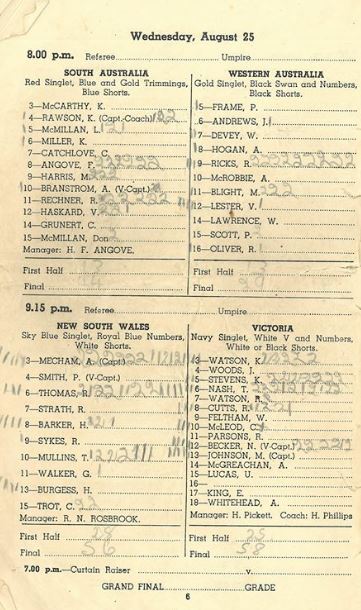 Wednesday, August 25
8.00 p.m. Referee Umpire
SOUTH AUSTRALIA
Red Singlet, Blue and Gold Trimmings,
Blue Shorts.
3—McCARTHY, K.
4—RAWSON, K. (Capt.-Coach)
5—McMILLAN, L.
6—MILLER, K.
7—CATCHLOVE, C.
8—ANGOVE, F.
9—HARRIS, M.
10—BRANSTROM, A. (V-Capt.)
11—RECHNER, R.
12—HASKARD, V.
14—GRUNERT, C.
15—McMILLAN, Don
Manager: H. F. ANGOVE.
First Half
Final
WESTERN AUSTRALIA
Gold Singlet, Black Swan and Numbers,
Black Shorts.
5—FRAME, P.
6—ANDREWS, J.
7—DEVEY, W.
8—HOGAN, A.
9—RICKS, R.
10—McROBBIE, A.
11—BLIGHT, M.
12—LESTER, V.
14—LAWRENCE, W.
15—SCOTT, P.
16—OLIVER, R.
First Half
Final
9.15 p.m. Referee Umpire
NEW SOUTH WALES
Sky Blue Singlet, Royal Blue Numbers,
White Shorts.
3—MECHAM, A. (Capt.)
4—SMITH, P. (V-Capt.)
6—THOMAS, R.
7—STRATH, R.
8—BARKER, H.
9—SYKES, R.
10—MULLINS, T.
11—WALKER, G.
13—BURGESS, H.
15—TROT, C.
Manager: R. N. ROSBROOK.
First Half 28
Final 56
VICTORIA
Navy Singlet, White V and Numbers,
White or Black Shorts.
3—WATSON, K.
4—WOODS, J.
5—STEVENS, K.
6—NASH, T.
7—WATSON, R.
8—CUTTS, R.
9—FELTHAM, W.
10—McLEOD, C.
11—PARSONS, R.
12—BECKER, N. (V-Capt.)
13—JOHNSON, M. (Capt.)
14—McGREACHAN, A.
15—LUCAS, U.
16—
17—KING, E.
18—WHITEHEAD, A.
Manager: H. Pickett. Coach: H. Phillips
First Half
Final 58
7.00 p.m.—Curtain Raiser v.
GRAND FINAL GRADE
6